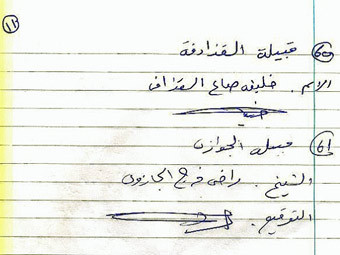 ١١
٦٠ قبيلة القذاذفة
الاسم . خليفه صالح القذافي
٦١ قبيلة الجوازي
الشيخ . راضي فرج الجازوي
التوقيع .